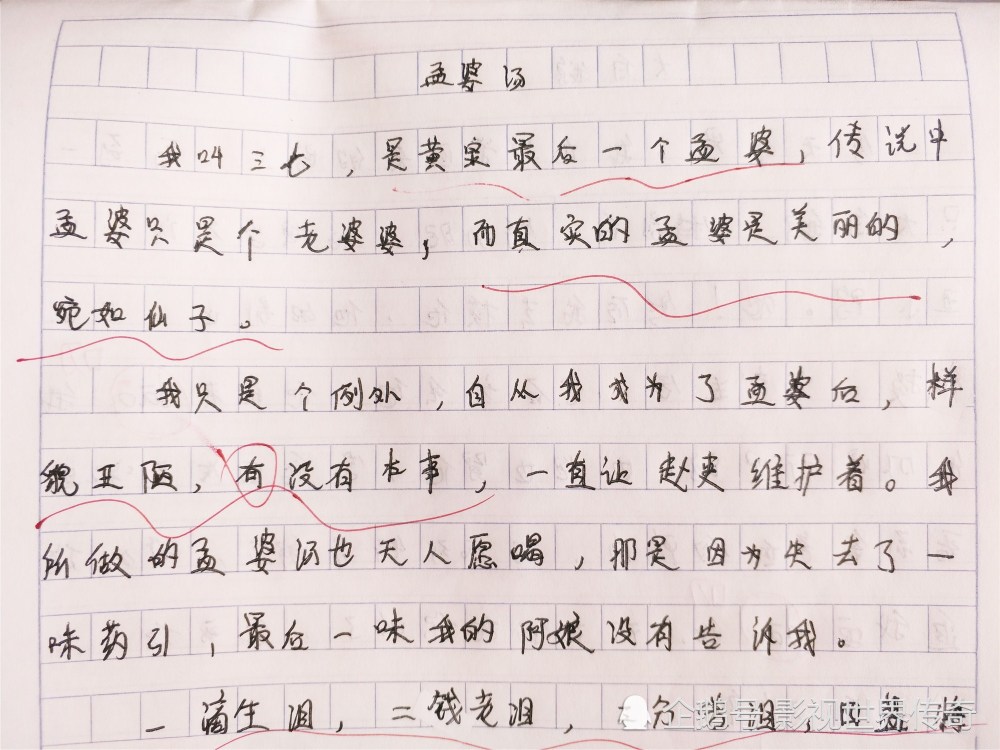 孟婆汤
我叫三七，是黄泉最后一个孟婆，传说中
孟婆只是个老婆婆，而真实的孟婆是美丽的，
宛如仙子。
我只是个例外，自从我成为了孟婆后，样
貌丑陋，有没有本事，一直让赵吏维护着。我
所做的孟婆汤也无人愿喝，那是因为失去了一
味药引，最后一味我的阿娘没有告诉我。
一滴生泪，二钱老泪，三分苦泪，四盏
企鹅号 影视世界传奇